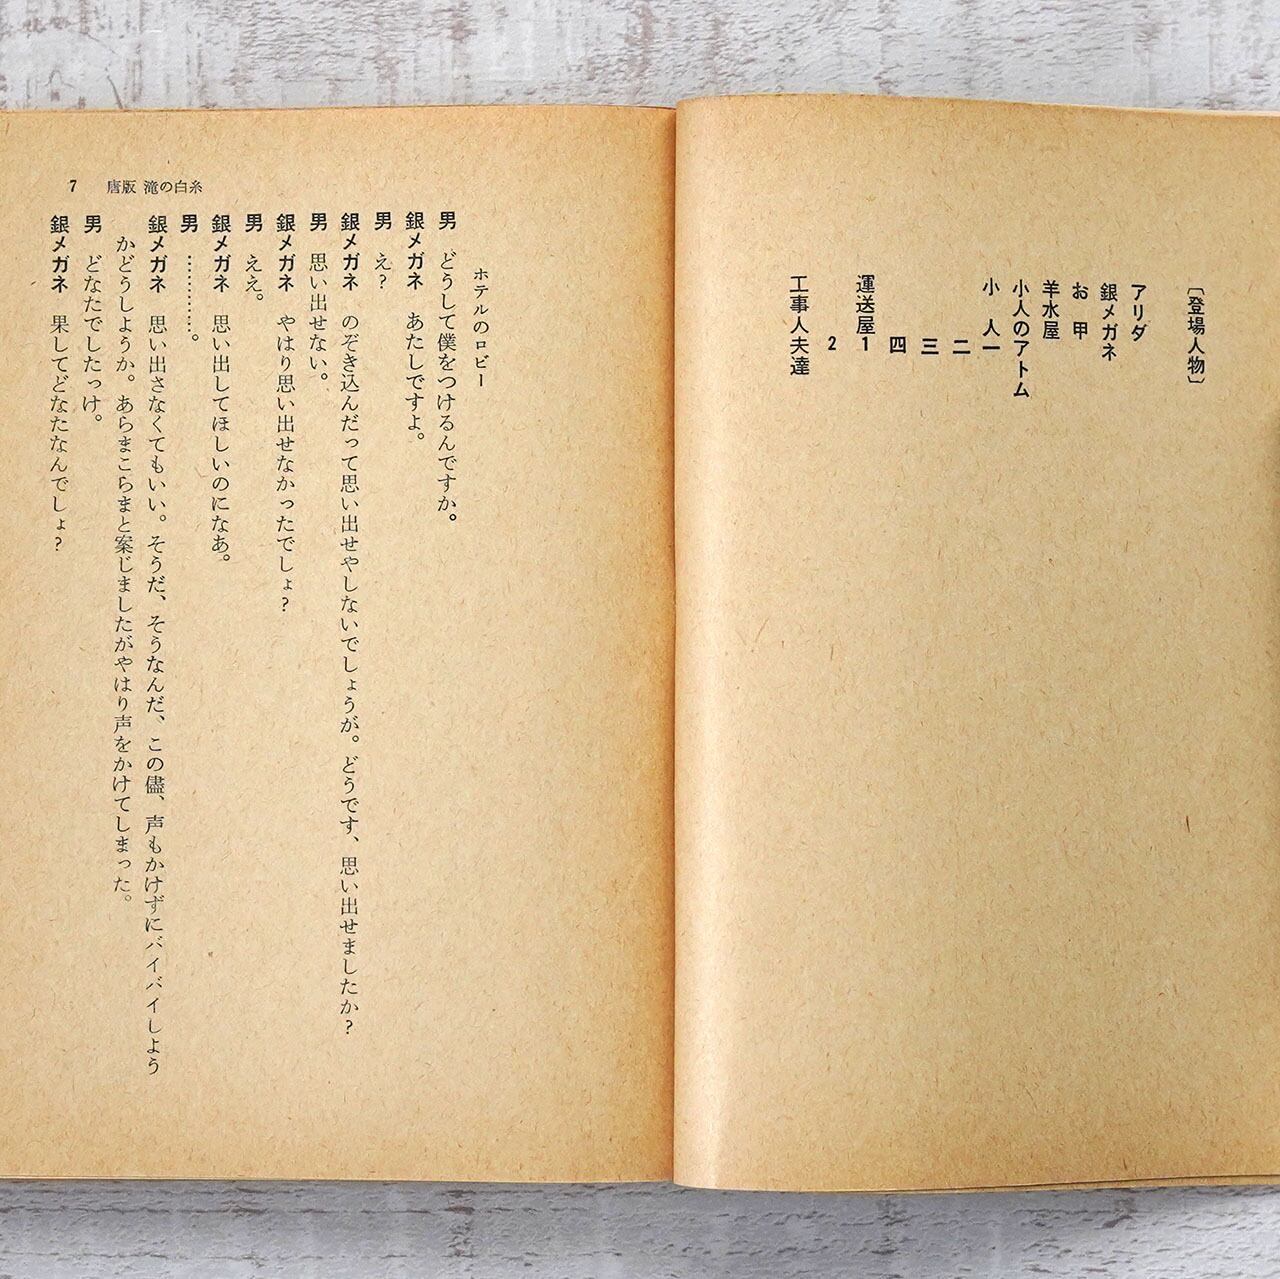 〔登場人物〕
アリダ
銀メガネ
お甲
羊水屋
小人のアトム
小人一
二
三
四
運送屋1
2
工事人夫達
7 唐版 滝の白糸
ホテルのロビー
男 どうして僕をつけるんですか。
銀メガネ あたしですよ。
男 え?
銀メガネ のぞき込んだって思い出せやしないでしょうが。どうです、思い出せましたか?
男 思い出せない。
銀メガネ やはり思い出せなかったでしょ?
男 ええ。
銀メガネ 思い出してほしいのになあ。
男 …………。
銀メガネ 思い出さなくてもいい。そうだ、そうなんだ、この儘、声もかけずにバイバイしよう
かどうしようか。あらまこらまと案じましたがやはり声をかけてしまった。
男 どなたでしたっけ。
銀メガネ 果してどなたなんでしょ?